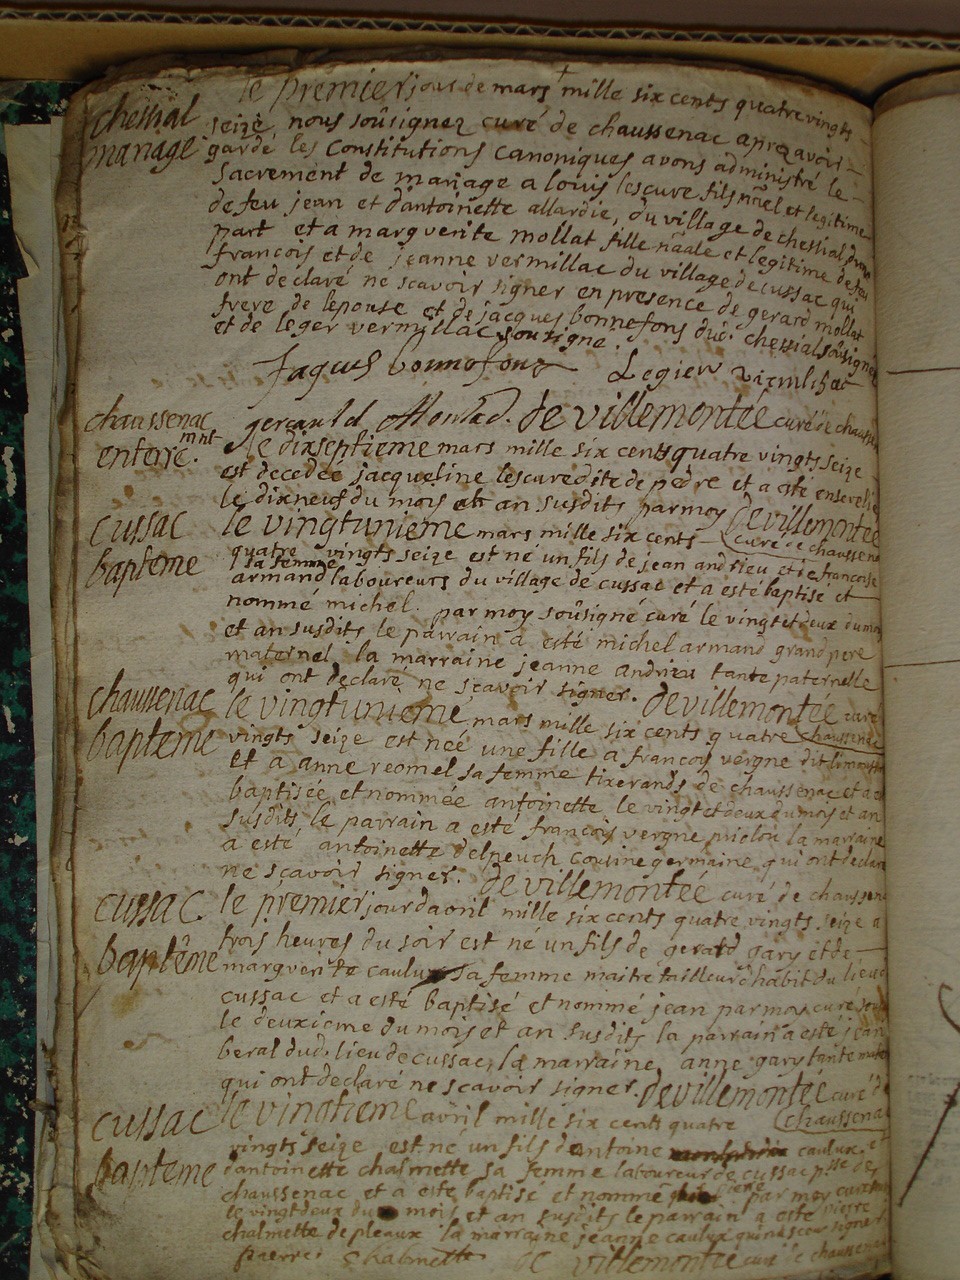 le premier jour de mars mille six cents quatre vingts
chessial
mariage
seize, nous soûsignez curé de chaussenac aprez avoir
gardé les Constitutions canoniques avons administré le
sacrement de mariage a louis lescure fils nãel et legitime
de feu jean et d'antoinette allardie, du village de chessial d'une
part et a marguerite mollat fille nãale et legitime de feu
francois et de jeanne vermillac du village de cussac qui
ont declaré ne scavoir signer en presence de gerard mollat
frere de lepouse et de jacques bonnefons dud. chessial soûsignez
et de leger vermillac sousigne.
Jaques bonnofons Legier
chaussenac
enterremnt.
de villemontée curé de chaussenac
le dixseptieme mars mille six cents quatre vingts seize
est decedée jacqueline lescure dite de pedre et a esté ensevelie
le dixneuf du mois et an susdits par moy de villemontée
curé de chaussenac
cussac
bapteme
le vingtunieme mars mille six cents
quatre vingts seize est né un fils de jean andrieu et de francoise
sa femme
armand laboureurs du village de cussac et a esté baptisé et
nommé michel. par moy soûsigné curé le vingt et deux du mois
et an susdits le parrain a esté michel armand grand pere
maternel la marraine jeanne andrieu tante paternelle
qui ont declaré ne scavoir signer. de villemontée curé
chaussenac
chaussenac
bapteme
le vingtunieme mars mille six cents quatre
vingts seize est née une fille a francois vergne dit
et a anne reomel sa femme tixerands de chaussenac et a esté
baptisée et nommée antoinette le vingt et deux du mois et an
susdits, le parrain a esté francois vergne la marraine
a esté antoinette delpeuch cousine germaine qui ont declaré
ne scavoir signer. de villemontée curé de chaussenac
cussac.
baptême
le premier jour d'avril mille six cents quatre vingts seize a
trois heures du soir est né un fils de gerald gary et de
marguerite caulux sa femme maitre tailleur d'habit du lieu de
cussac et a esté baptisé et nommé jean par moy curé
le deuxieme du mois et an susdits la parrain a esté jean
beral dud. lieu de cussac, la marraine anne gary tante
qui ont declaré ne scavoir signer. de villemontée curé de
chaussenac
cussac
bapteme
le vingtieme avril mille six cents quatre
vingts seize est né un fils d'antoine caulux et
d'antoinette chalmette sa femme laboureur de cussac psse de
chaussenac et a esté baptisé et nommé par moy curé
le vingt deux du mois et an susdits le parrain a esté pierre
chalmette de pleaux la marraine jeanne caulux signer
pierre chalmette de villemontée curé de chaussenac